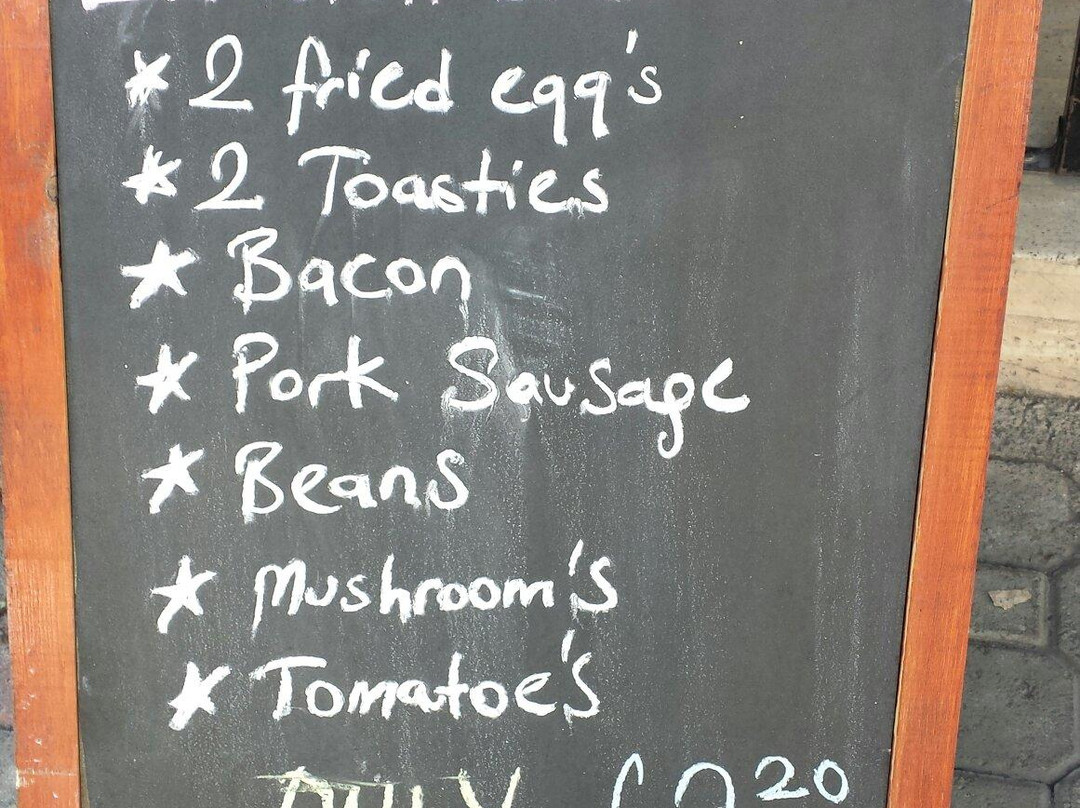 * 2 fried egg's
* 2 Toasties
* Bacon
* Pork Sausage
* Beans
* Mushroom's
* Tomatoe's
20